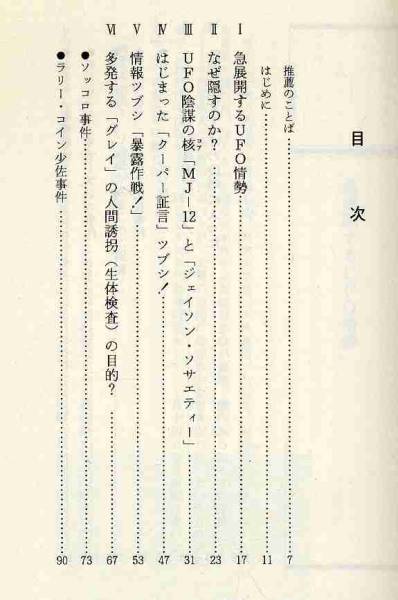 目次
推薦のことば……7
はじめに……11
Ⅰ 急展開するUFO情勢……17
Ⅱ なぜ隠すのか？……23
Ⅲ UFO陰謀の核（コア）「MJ―12」と「ジェイソン・ソサエティー」……31
Ⅳ はじまった「クーパー証言」ツブシ！……47
Ⅴ 情報ツブシ「暴露作戦！」……53
Ⅵ 多発する「グレイ」の人間誘拐（生体検査）の目的？……67
●ソッコロ事件……73
●ラリー・コイン少佐事件……90